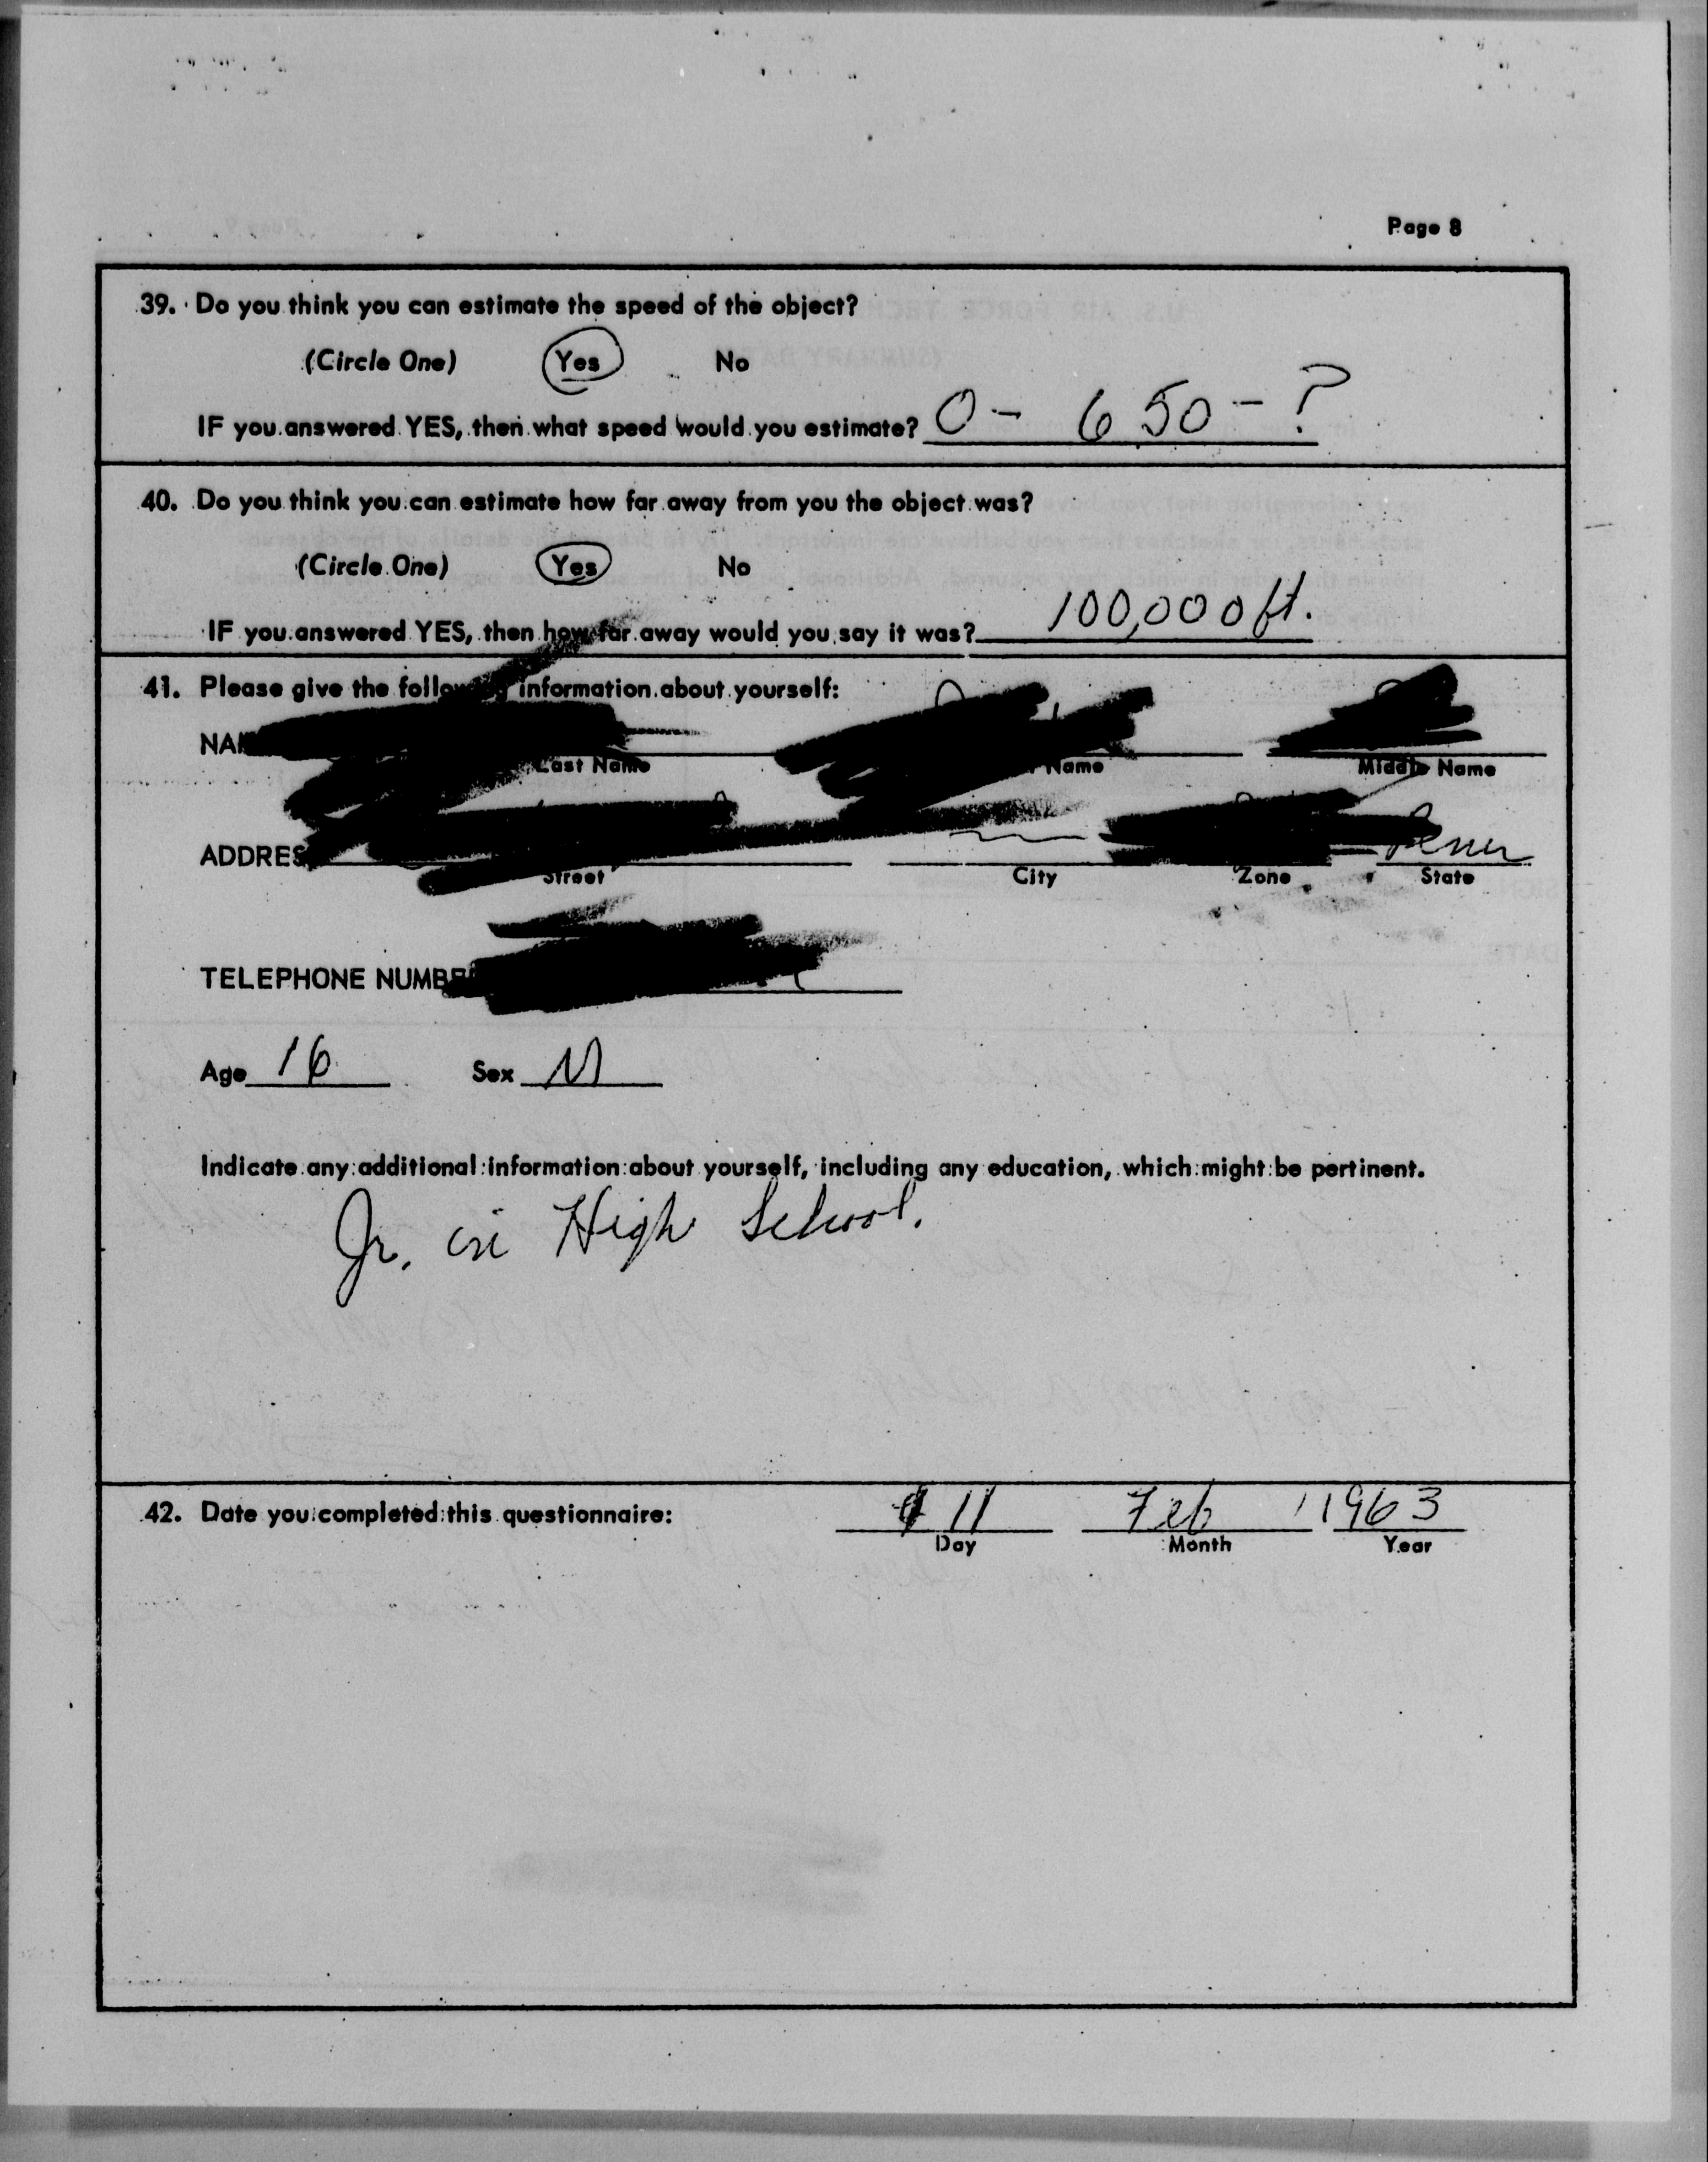 Page 8
39. Do you think you can estimate the speed of the object?
(Circle One) Yes No
IF you answered YES, then what speed would you estimate? 0 - 650 - ?
40. Do you think you can estimate how far away from you the object was?
(Circle One) Yes No
IF you answered YES, then how far away would you say it was? 100,000 ft.
41. Please give the following information about yourself:
Last Name Name Middle Name
Penn
Street City Zone State
TELEPHONE
Age 16 Sex M
Indicate any additional information about yourself, including any education, which might be pertinent.
Jr. in High School.
42. Date you completed this questionnaire: 11 Feb 1963
Day Month Year